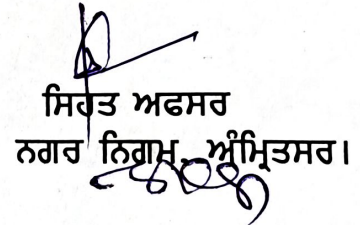 ਸਿਹਤ ਅਫਸਰ
ਨਗਰ ਨਿਗਮ ਅੰਮ੍ਰਿਤਸਰ।